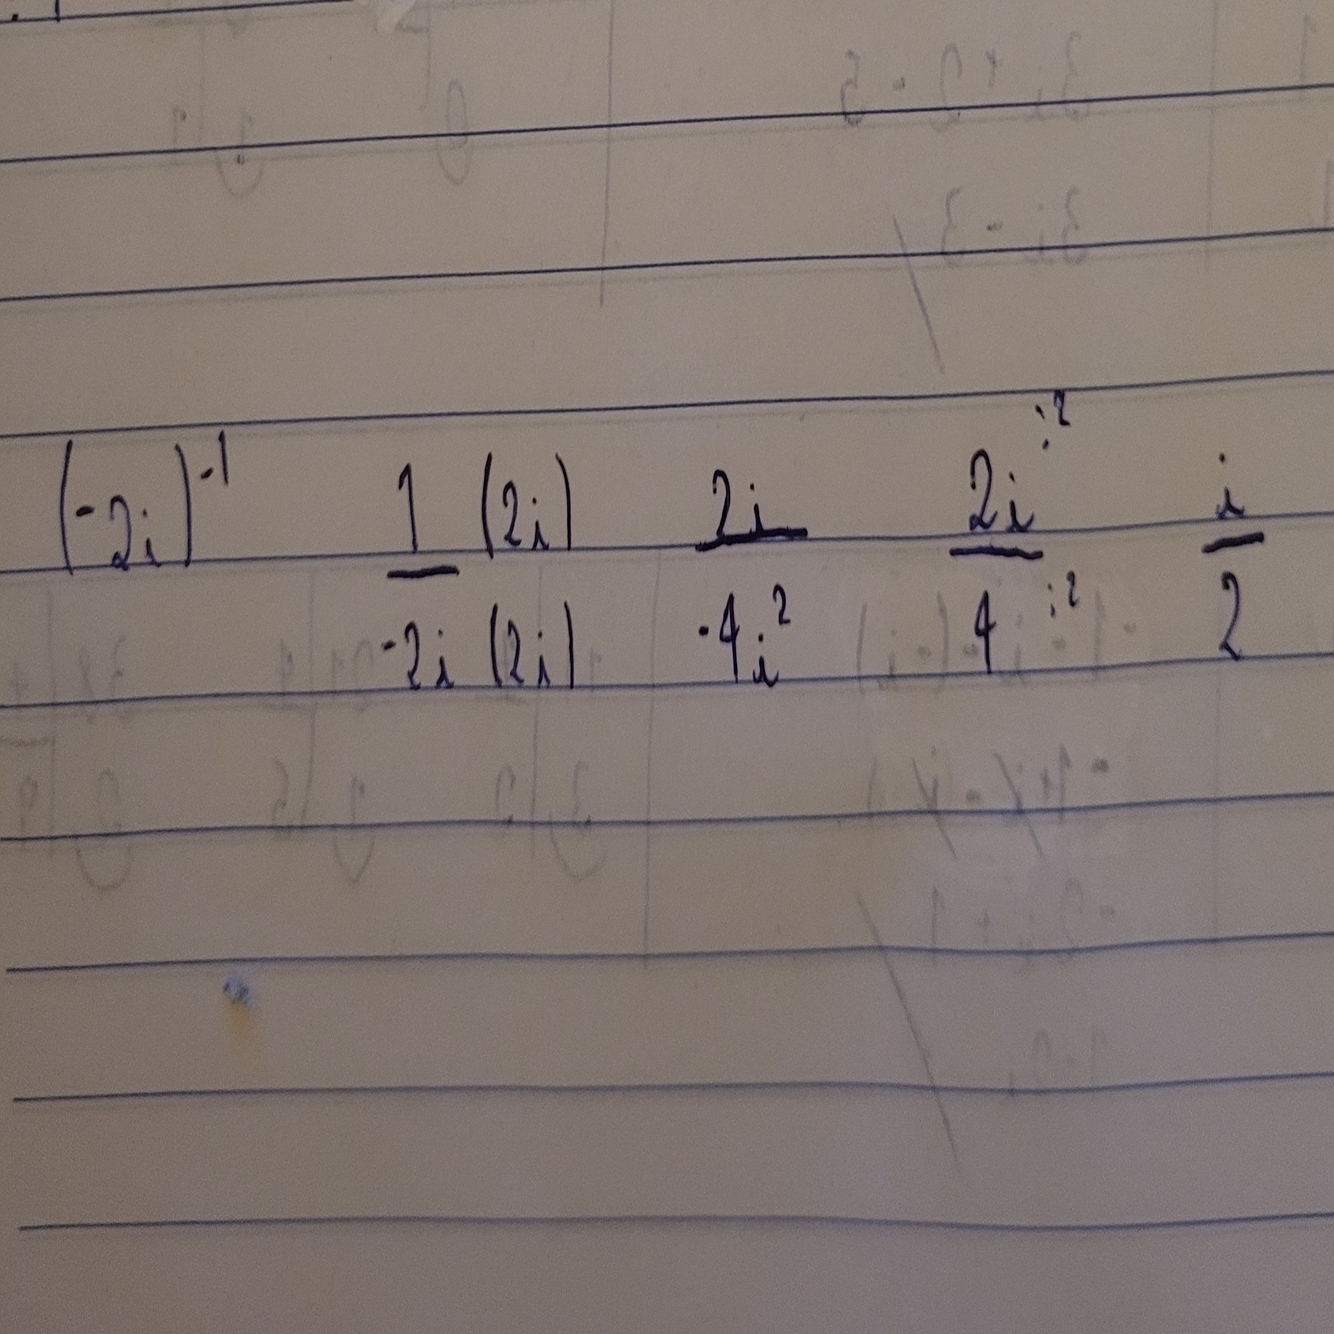 (-2i)^-1 1 (2i) / -2i (2i) 2i / -4i² 2i :2 / 4 :2 i / 2